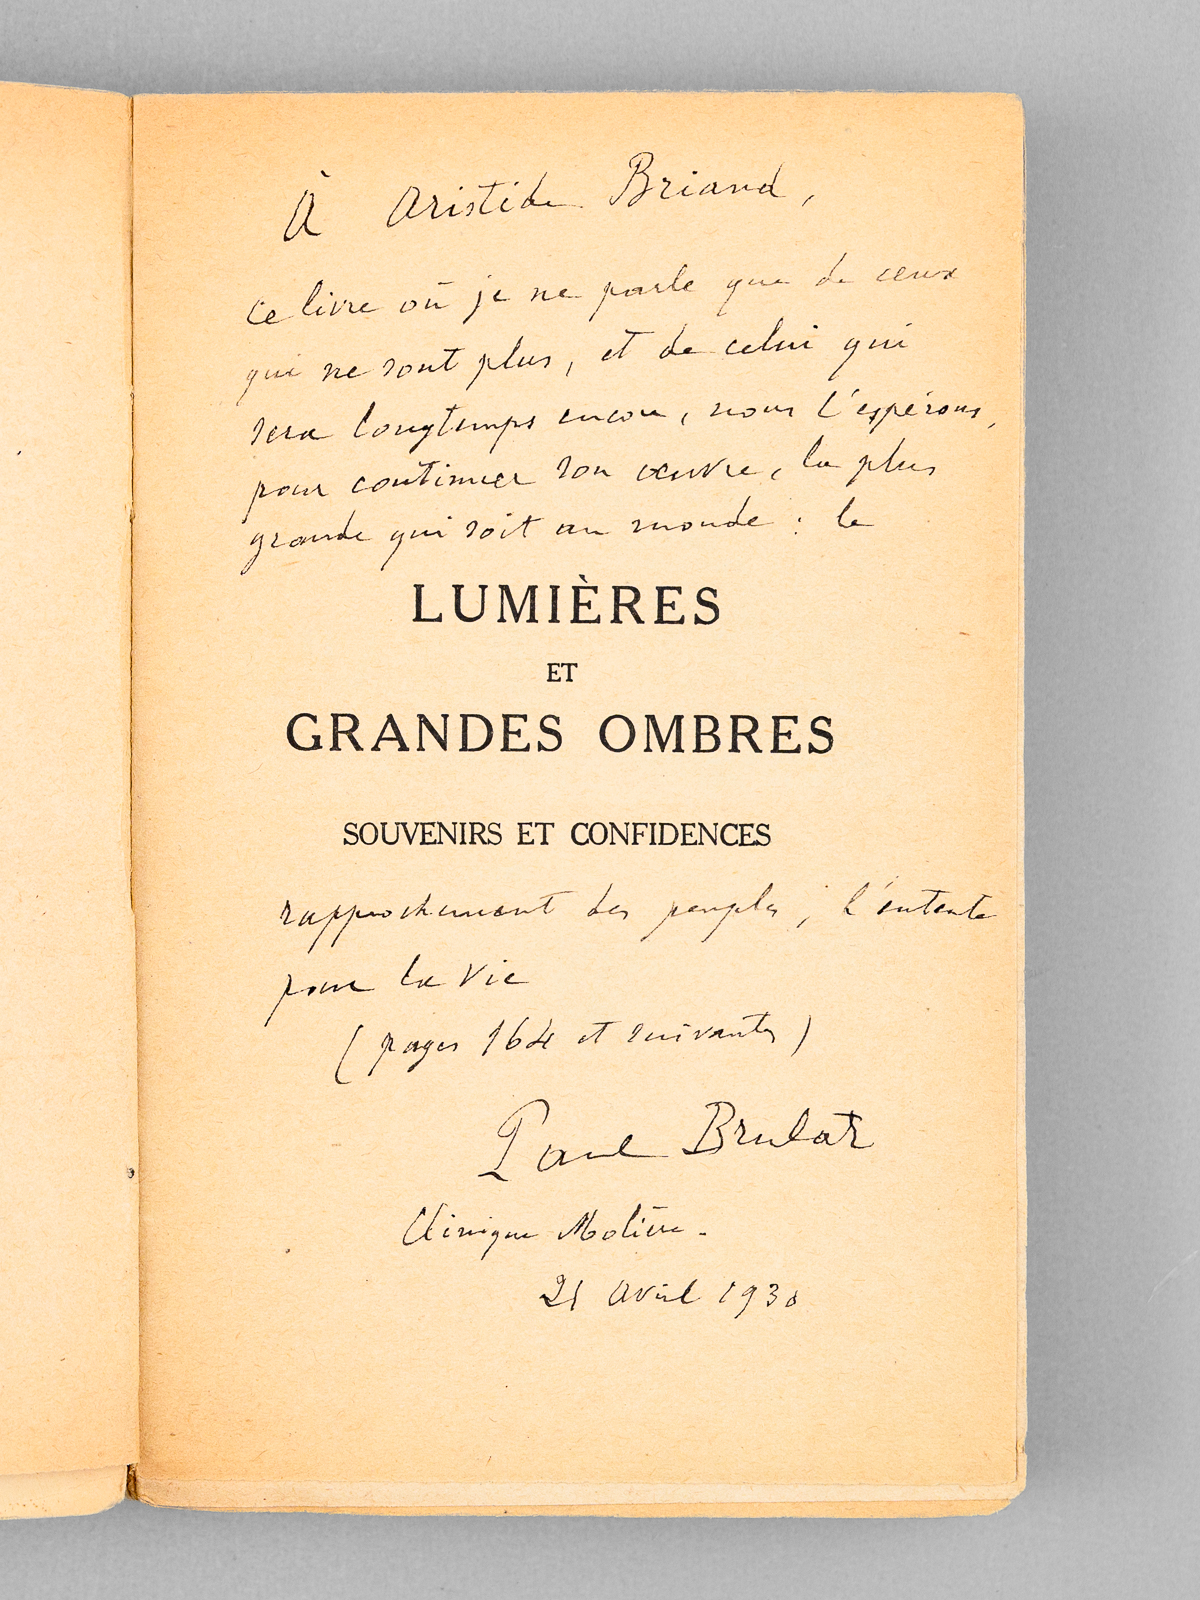 À Aristide Briand,
ce livre où je ne parle que de ceux
qui ne sont plus, et de celui qui
sera longtemps encore, nous l'espérons,
pour continuer son œuvre, la plus
grande qui soit au monde : le
LUMIÈRES
ET
GRANDES OMBRES
SOUVENIRS ET CONFIDENCES
rapprochement des peuples, l'entente
pour la vie
(pages 164 et suivantes)
Paul Brulat
Clinique Molière.
21 avril 1930